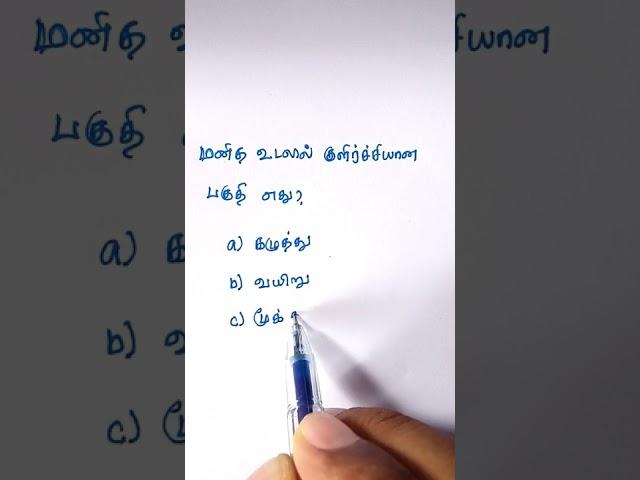 மனித உடலால் குளிர்ச்சியான
பகுதி எது?
a) கழுத்து
b) வயிறு
c) மூக்